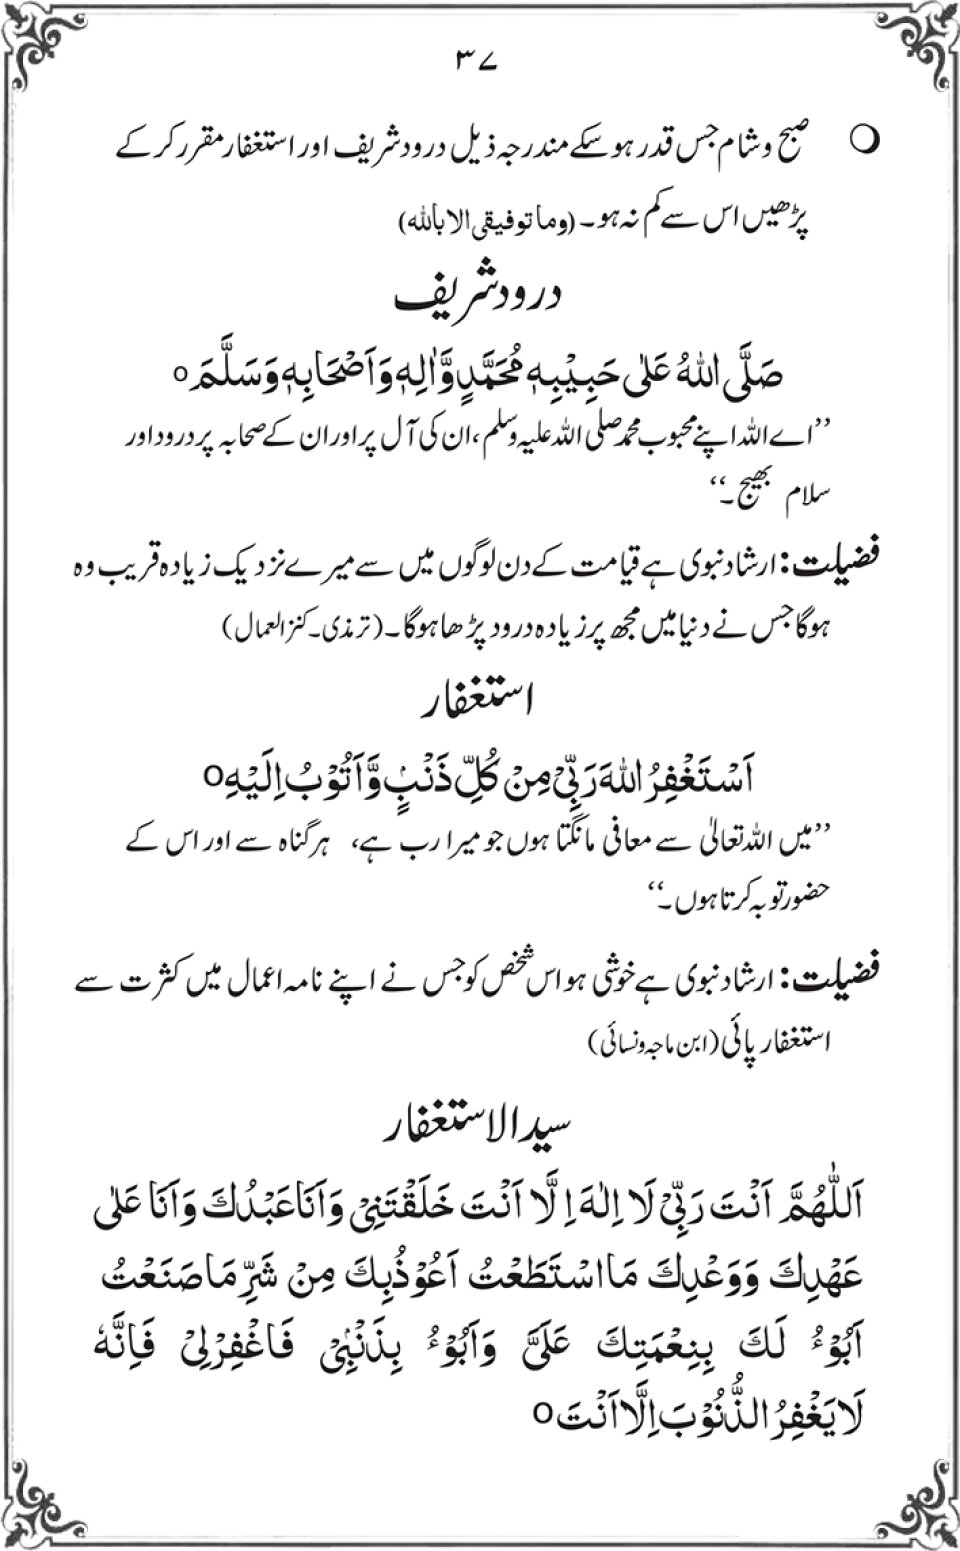 ۳۷
صبح و شام جس قدر ہو سکے مندرجہ ذیل درود شریف اور استغفار مقرر کر کے
پڑھیں اس سے کم نہ ہو۔ (وما توفیقی الا باللہ)
درود شریف
صَلَّى اللهُ عَلٰى حَبِيْبِهٖ مُحَمَّدٍ وَّاٰلِهٖ وَاَصْحَابِهٖ وَسَلَّمَ ○
’’اے اللہ اپنے محبوب محمد صلی اللہ علیہ وسلم، ان کی آل پر اور ان کے صحابہ پر درود اور
سلام بھیج۔‘‘
فضیلت: ارشاد نبوی ہے قیامت کے دن لوگوں میں سے میرے نزدیک زیادہ قریب وہ
ہوگا جس نے دنیا میں مجھ پر زیادہ درود پڑھا ہوگا۔ (ترمذی۔ کنز العمال)
استغفار
اَسْتَغْفِرُ اللهَ رَبِّيْ مِنْ كُلِّ ذَنْۢبٍ وَّاَتُوْبُ اِلَيْهِ ○
’’میں اللہ تعالیٰ سے معافی مانگتا ہوں جو میرا رب ہے، ہر گناہ سے اور اس کے
حضور توبہ کرتا ہوں۔‘‘
فضیلت: ارشاد نبوی ہے خوشی ہو اس شخص کو جس نے اپنے نامہ اعمال میں کثرت سے
استغفار پائی (ابن ماجہ ونسائی)
سید الاستغفار
اَللّٰهُمَّ اَنْتَ رَبِّيْ لَا اِلٰهَ اِلَّا اَنْتَ خَلَقْتَنِيْ وَاَنَا عَبْدُكَ وَاَنَا عَلٰى
عَهْدِكَ وَوَعْدِكَ مَا اسْتَطَعْتُ اَعُوْذُبِكَ مِنْ شَرِّ مَا صَنَعْتُ
اَبُوْءُ لَكَ بِنِعْمَتِكَ عَلَيَّ وَاَبُوْءُ بِذَنْۢبِيْ فَاغْفِرْلِيْ فَاِنَّهٗ
لَا يَغْفِرُ الذُّنُوْبَ اِلَّا اَنْتَ ○